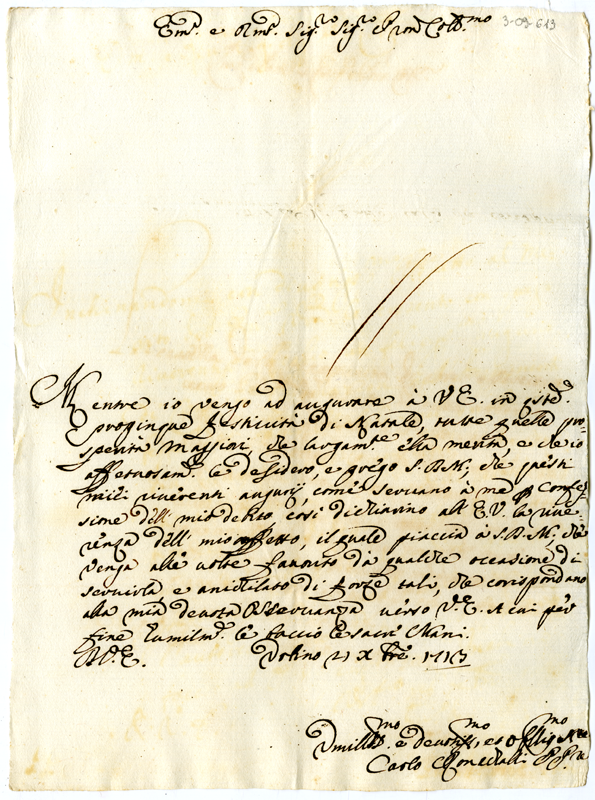 Em.o e Rm.o Sig.r Sig.r e Pron Coll.mo
3-09-613
Mentre io vengo ad augurare à V E. in q.ste
propinque festiuità di Natale, tutte quelle pro-
sperità maggiori, che largam.te ella merita, e che io
affettuosam.te le desidero, e prego S. D. M.; che questi
miei riuerenti augurij, come seruano à me p confes-
sione dell' mio debito, così dichiarino all' E. V. la riue-
renza dell' mio affetto, il quale piaccia à S. D. M., che
venga alle uolte fauorito da qualche occasione di
seruirla e di forze tali, che corrispondano
alla mia deuota osseruanza uerso V. E. A cui per
fine humilm.te le faccio le sacre Mani.
D V. E. Vrbino 21 Xbre. 1713
Vmiliss.mo e deuotiss.mo, et obblig.mo
Carlo